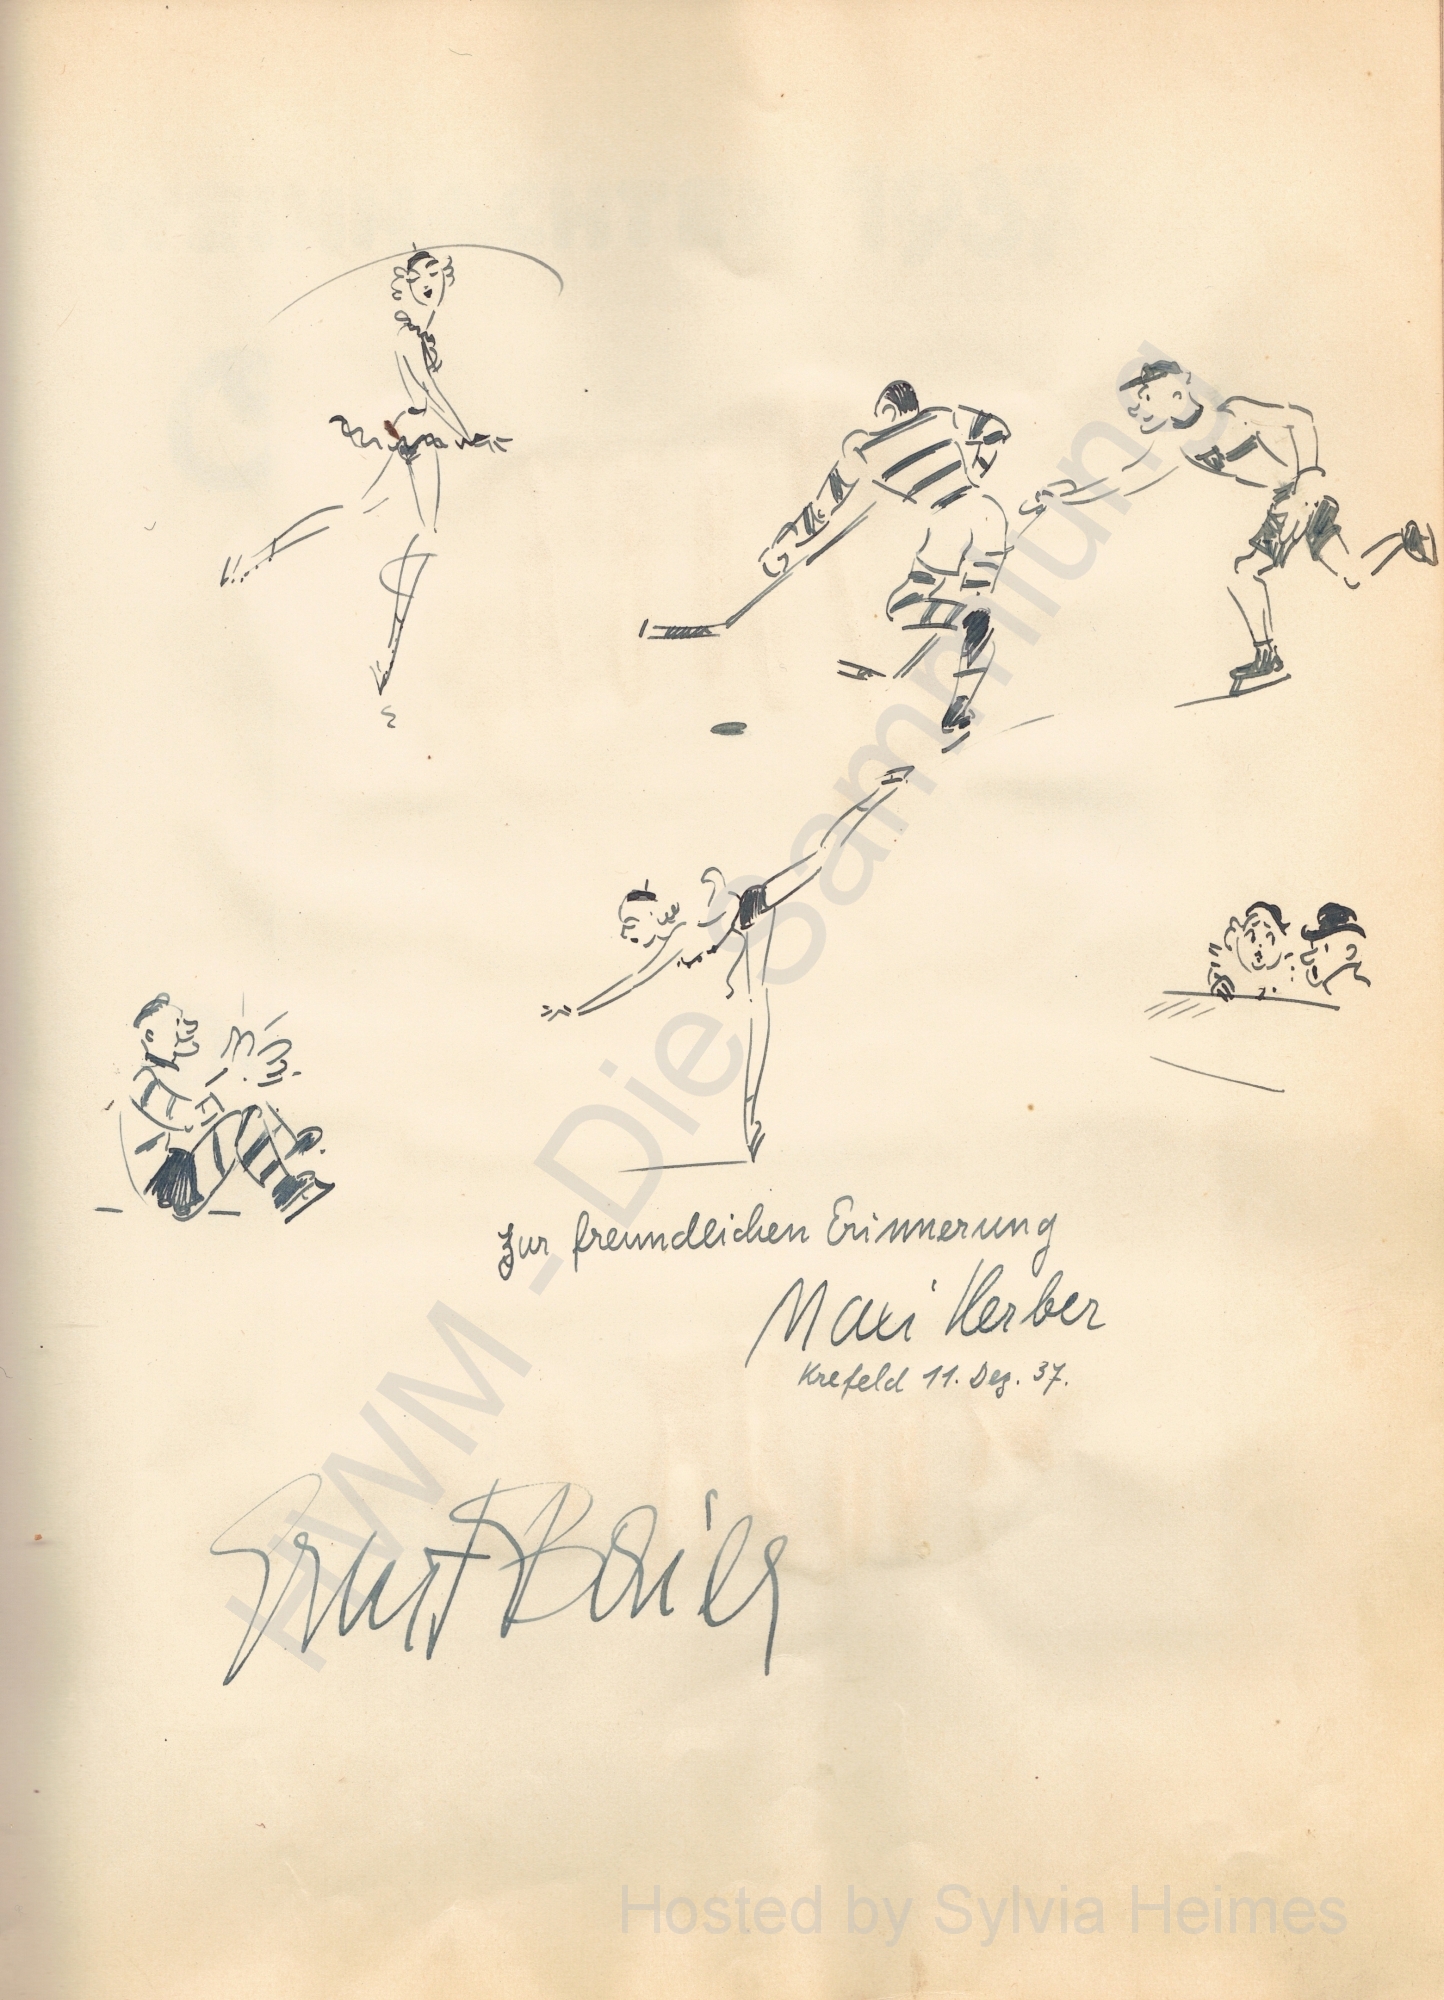 Zur freundlichen Erinnerung
Maxi Herber
Krefeld 11. Dez. 37.
Ernst Baier
HWM - Die Sammlung
Hosted by Sylvia Heimes